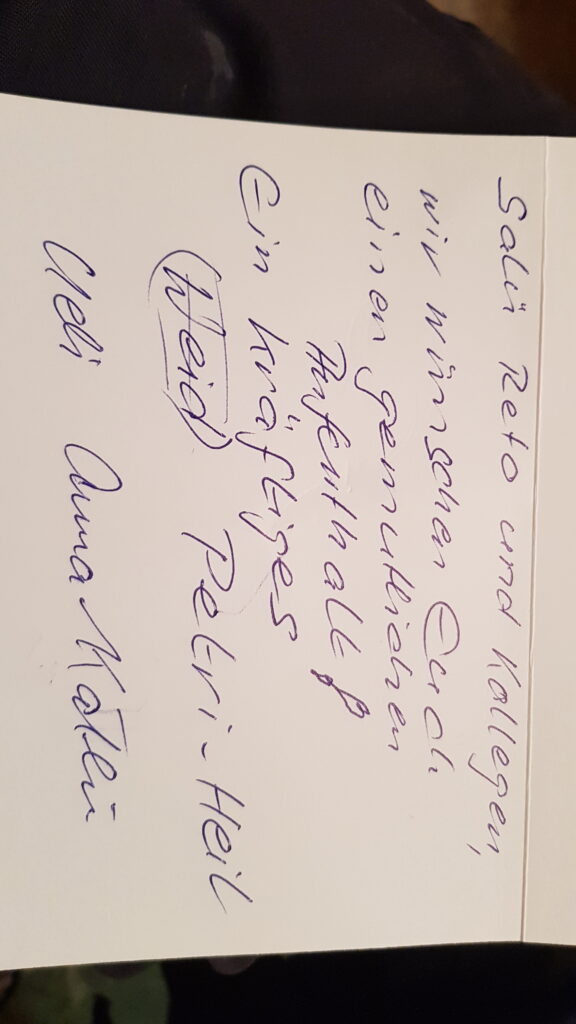 Salü Reto und Kollegen,
wir wünschen Euch
einen gemütlichen
Aufenthalt &
Ein kräftiges
(Weid) Petri-Heil
Ueli AnnaKathri